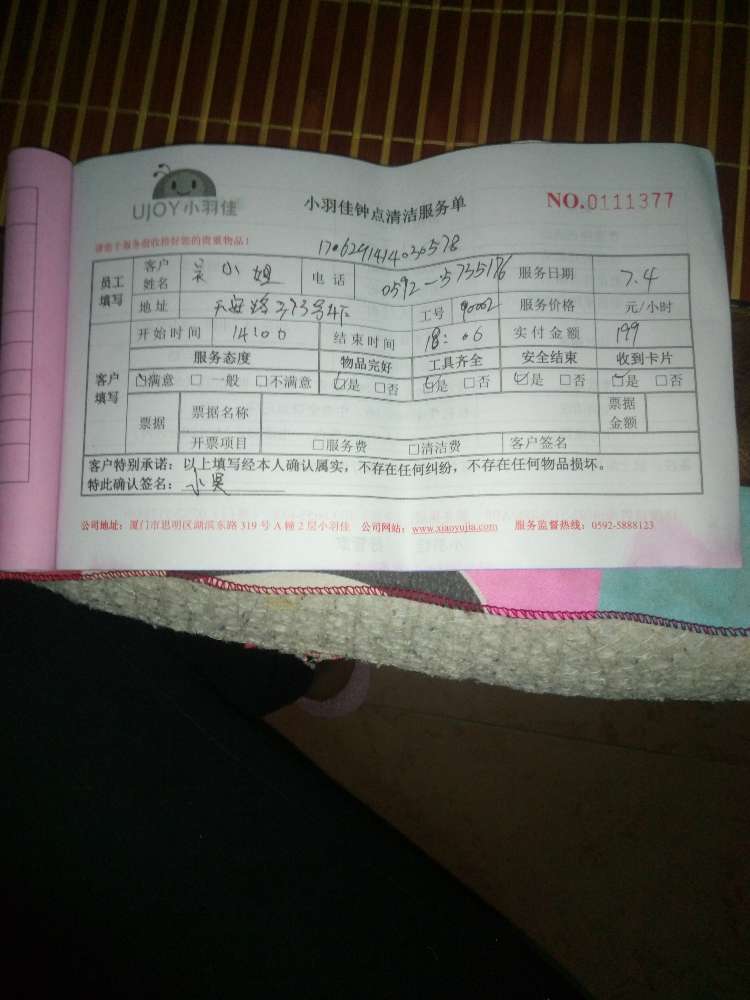 UJOY小羽佳
小羽佳钟点清洁服务单
NO.0111377
请您于服务前收捡好您的贵重物品!
1706291414030578
员工填写 客户姓名 吴小姐 电话 0592-5735176 服务日期 7.4
地址 工号 90002 服务价格 元/小时
客户填写 开始时间 14:00 结束时间 18:06 实付金额 199
服务态度 物品完好 工具齐全 安全结束 收到卡片
☑满意 □一般 □不满意 ☑是 □否 ☑是 □否 ☑是 □否 ☑是 □否
票据 票据名称 票据金额
开票项目 □服务费 □清洁费 客户签名
客户特别承诺：以上填写经本人确认属实，不存在任何纠纷，不存在任何物品损坏。
特此确认签名：小吴
公司地址：厦门市思明区湖滨东路 319 号 A 幢 2 层小羽佳 公司网站：www.xiaoyujia.com 服务监督热线：0592-5888123